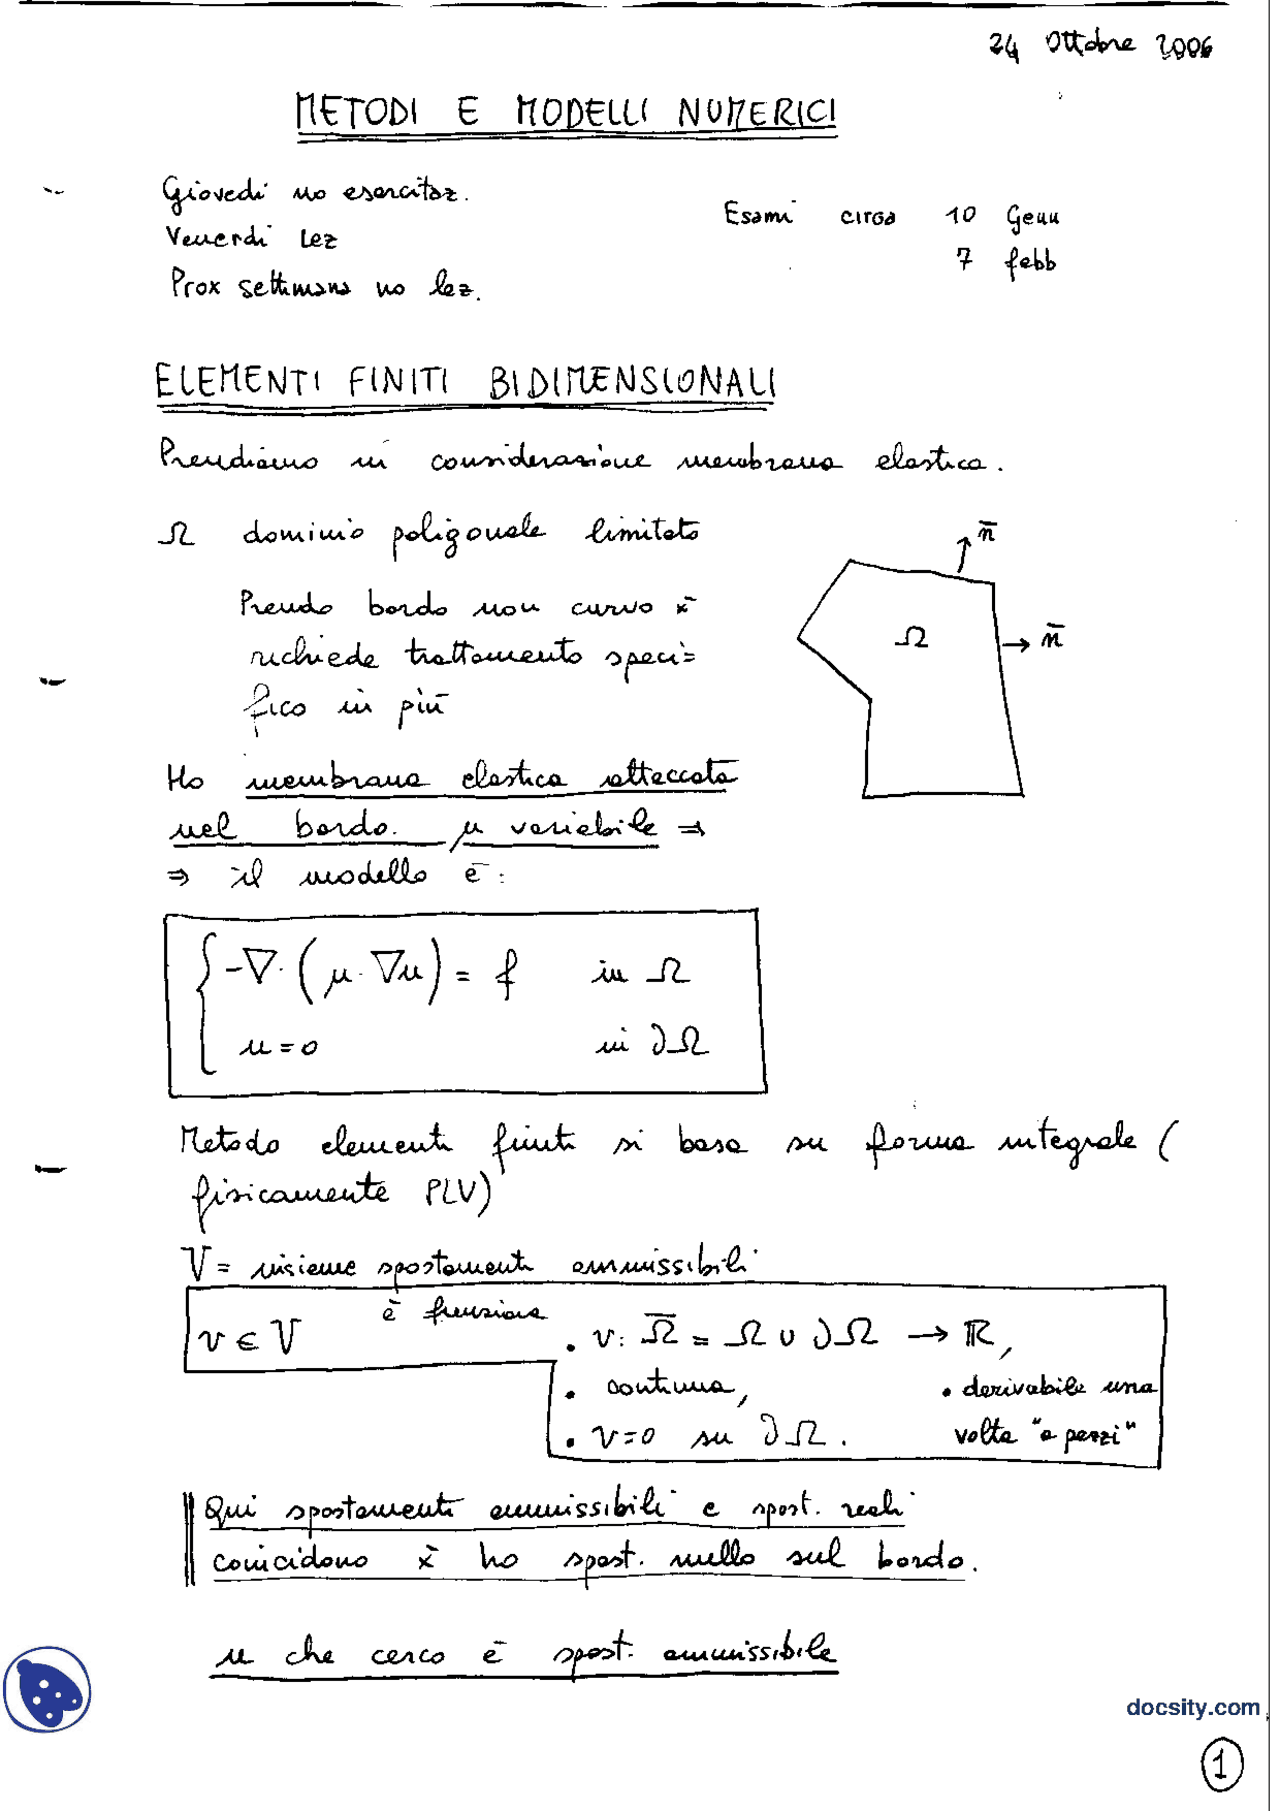 24 Ottobre 2006
METODI E MODELLI NUMERICI
Giovedì no esercitaz.
Venerdì Lez
Prox settimana no lez.
Esami circa 10 Genn
7 febb
ELEMENTI FINITI BIDIMENSIONALI
Prendiamo in considerazione membrana elastica.
Ω dominio poligonale limitato
Prendo bordo non curvo x̄
richiede trattamento speci=
fico in più
n̄
Ω
n̄
Ho membrana elastica attaccata
nel bordo. μ variabile ⇒
⇒ il modello è:
{ -∇·(μ·∇u) = f in Ω
u=0 in ∂Ω
Metodo elementi finiti si basa su forma integrale (
fisicamente PLV)
V = insieme spostamenti ammissibili
v ∈ V è funzione • v: Ω̄ = Ω ∪ ∂Ω → ℝ,
• continua, • derivabile una
• v=0 su ∂Ω. volta "a pezzi"
Qui spostamenti ammissibili e spost. reali
coincidono x̄ ho spost. nullo sul bordo.
u che cerco è spost. ammissibile
docsity.com
1